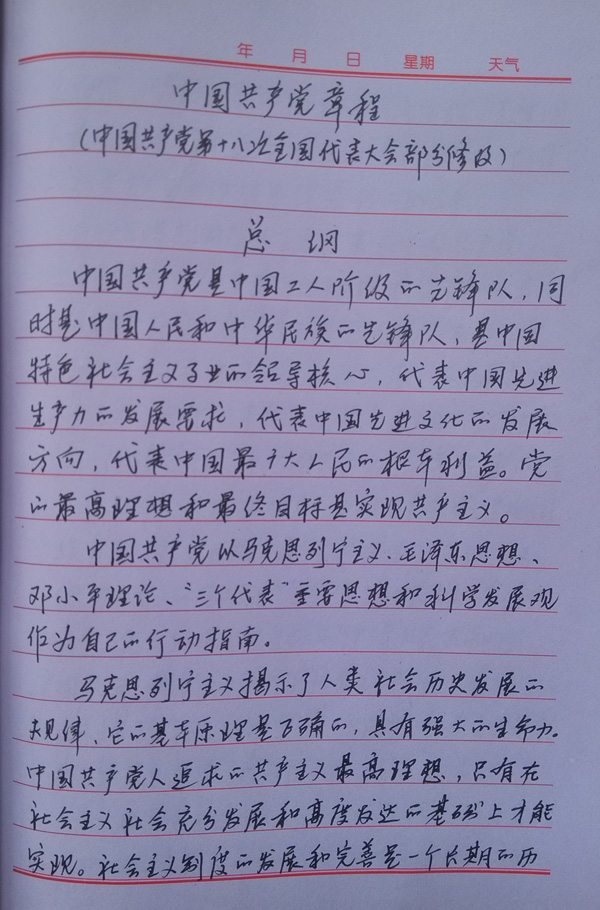 年 月 日 星期 天气
中国共产党章程
(中国共产党第十八次全国代表大会部分修改)
总纲
中国共产党是中国工人阶级的先锋队,同
时是中国人民和中华民族的先锋队,是中国
特色社会主义事业的领导核心,代表中国先进
生产力的发展要求,代表中国先进文化的发展
方向,代表中国最广大人民的根本利益。党
的最高理想和最终目标是实现共产主义。
中国共产党以马克思列宁主义、毛泽东思想、
邓小平理论、“三个代表”重要思想和科学发展观
作为自己的行动指南。
马克思列宁主义揭示了人类社会历史发展的
规律,它的基本原理是正确的,具有强大的生命力。
中国共产党人追求的共产主义最高理想,只有在
社会主义社会充分发展和高度发达的基础上才能
实现。社会主义制度的发展和完善是一个长期的历